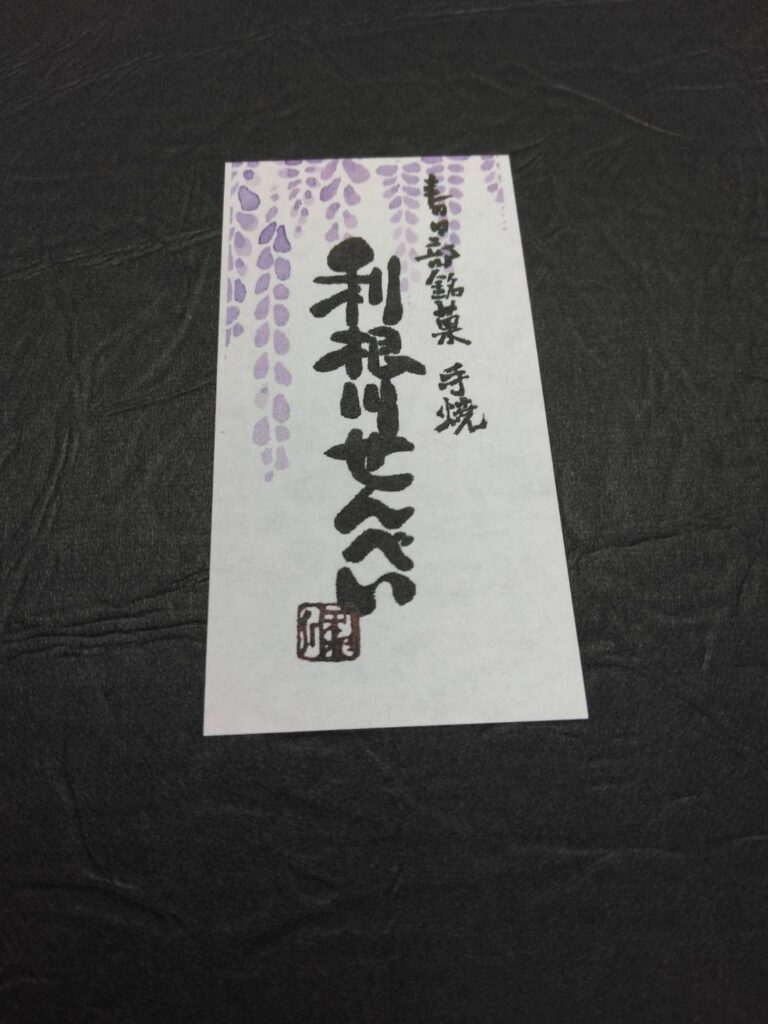 春日部銘菓 手焼
利根川せんべい